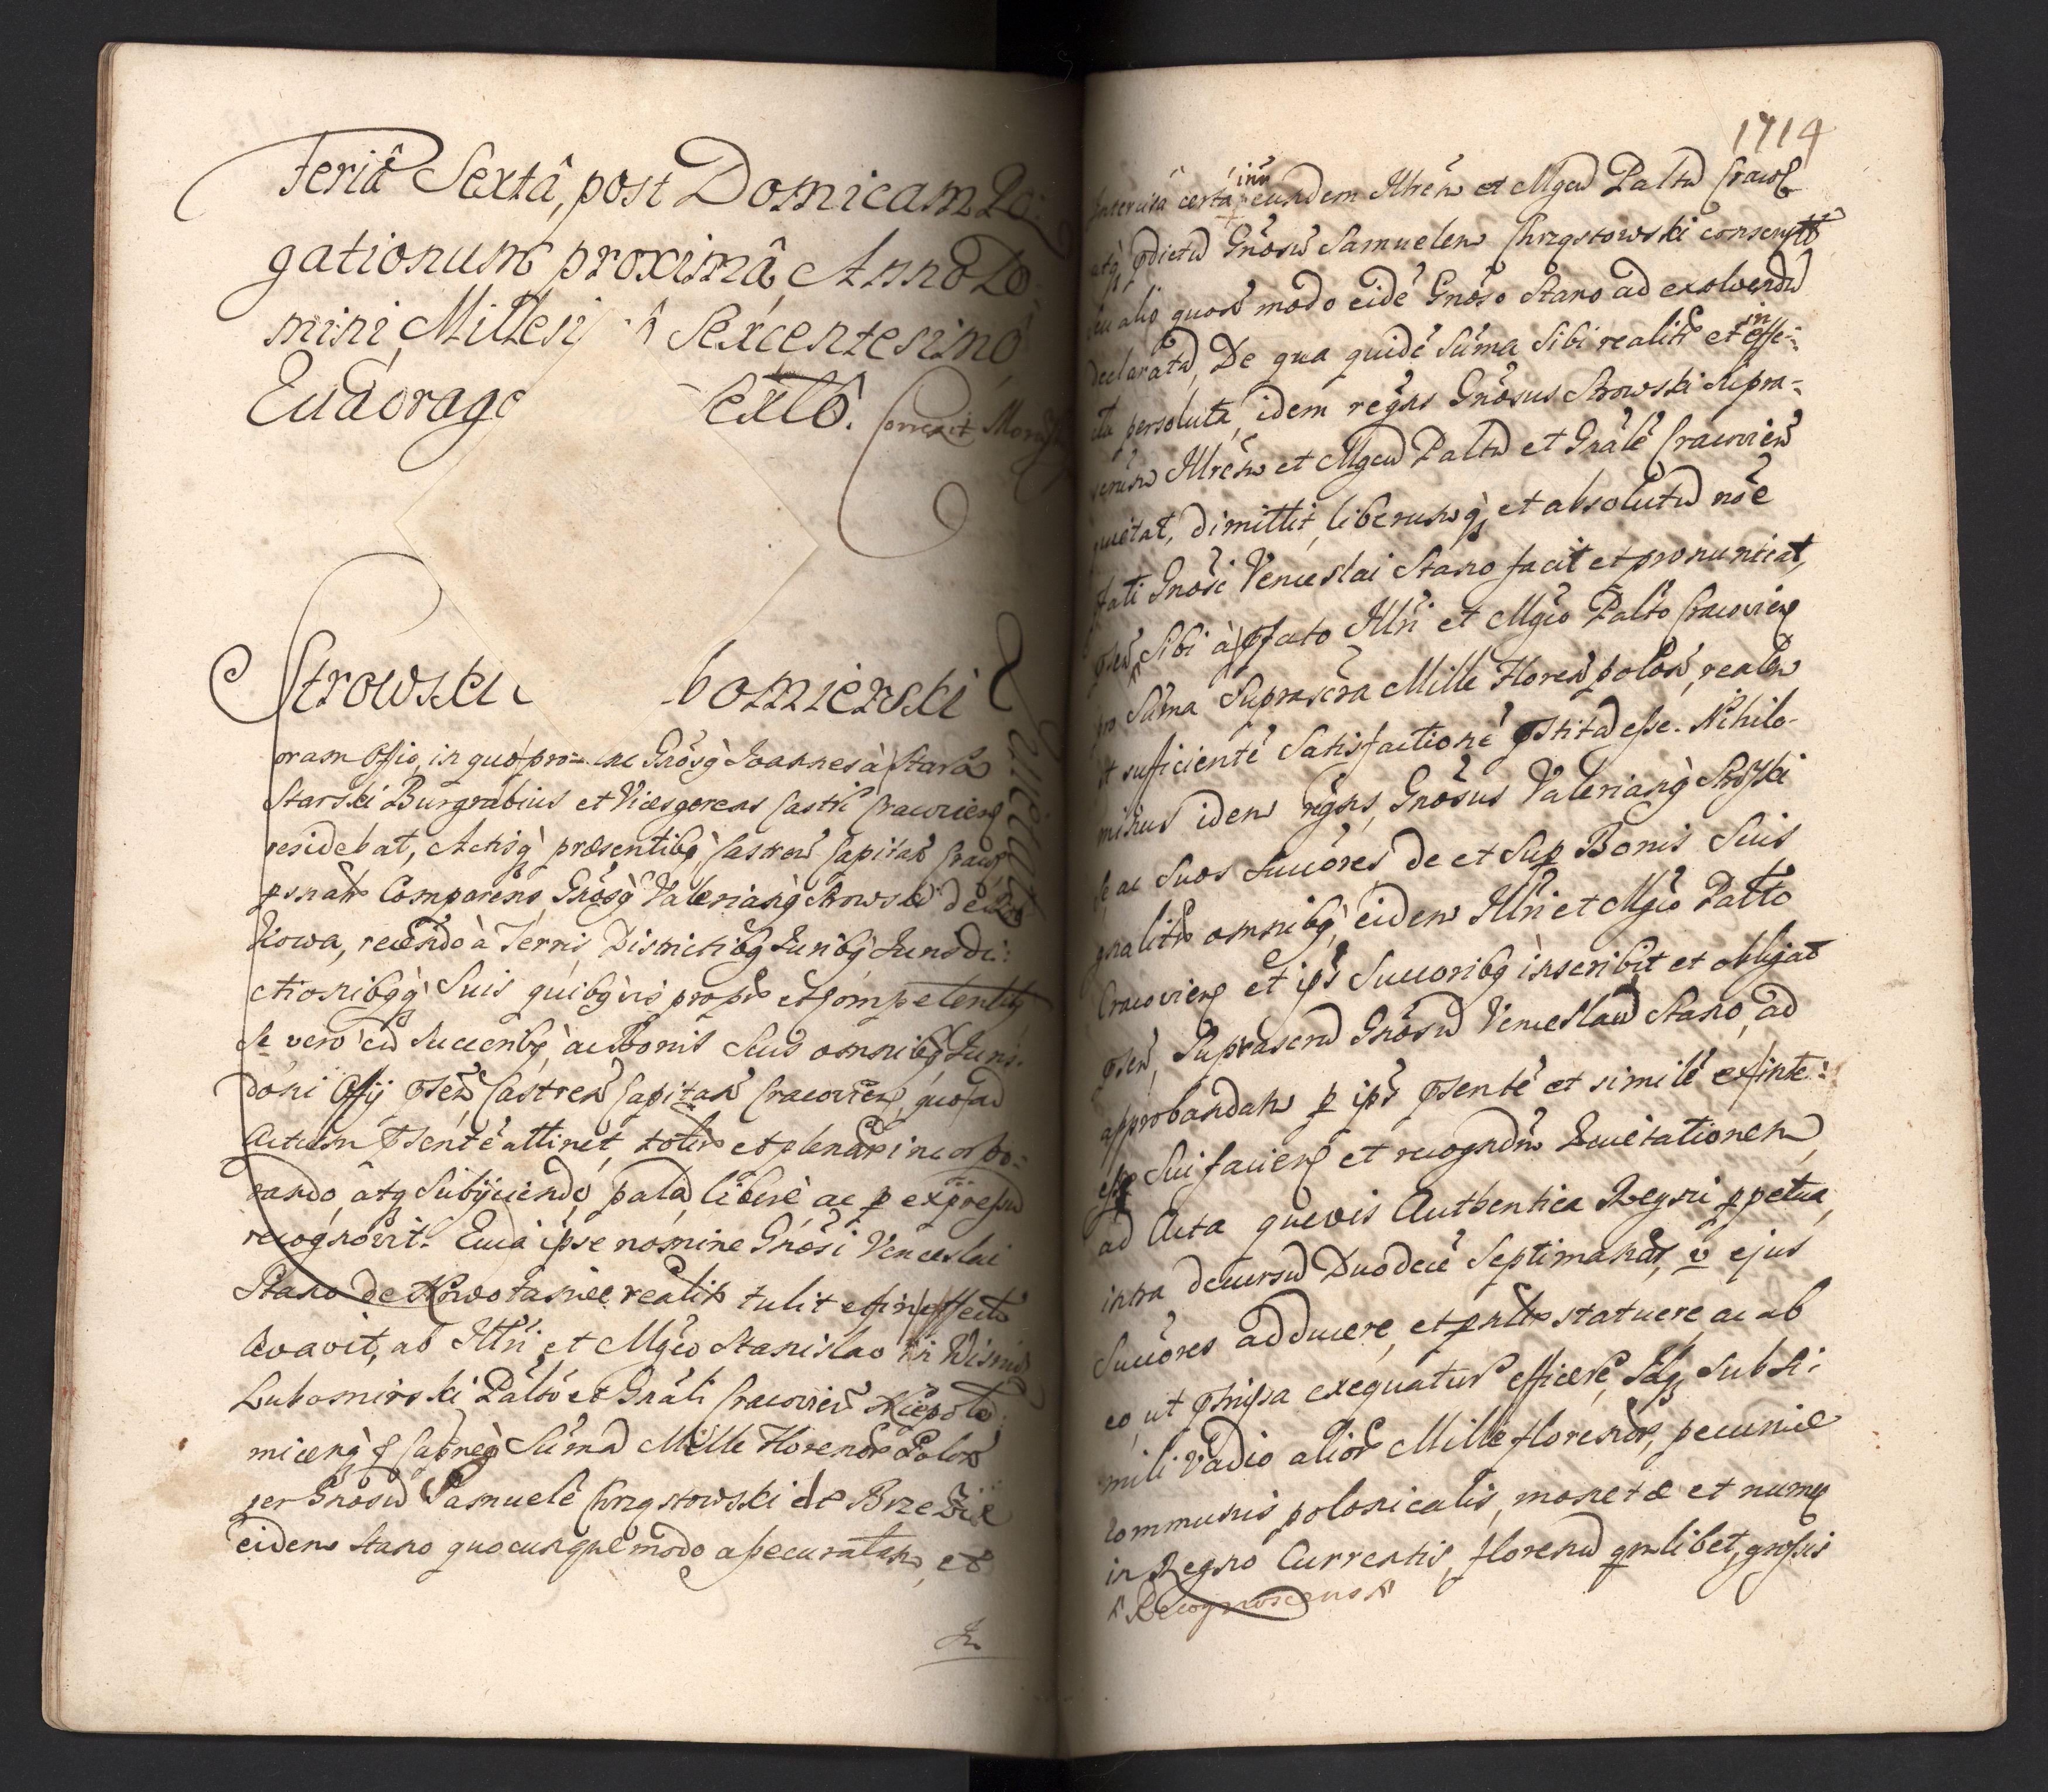 Feriâ Sextâ, post Domicam Ro:
gationum proximâ, Anno Do
mini, Millesi Sexcentesimo
Quadrage Sexto. Correxit
Strowski bomierski
Quietat
oram Offio, in quo pro Gnosq Joannes à Starà
Starski Burgrabius et Vicesgerens Castri Cracovien
residebat, Actisq præsentibq Castren Capitan Cracov
psnalr Comparens Gnosq Valerianq Strowski de
kowa, recedendo à Terris, Districtibq Juribq Jurisdi:
ctionibqq Suis quibqvis propr et competentibq
Se vero cu Successibq, ac Bonis Suis omnibq Juris
doni Offij Psen Castren Capitan Cracovien, quo ad
Actum Psente attinet, totlr et plenar incorpo:
rando, atq Subijciendo, pala, libere ac p expressu
recognovit. Quia ipse nomine Gnosi Venceslai
Stano de Nowotaniec realitr tulit et in effectu
levavit, ab Illri et Mgco Stanislao in Wisnicz
Lubomirski Palto et Gnali Cracovien Niepolo
micenq Saɓneq Suma Mille Florenor Polon
per Gnosu Samuele Chrzqstowski de Brzezie
eidem Stano quocunque modo assecuratam, et
1714
Intercisa certa inter eundem Illrem et Mgcu Paltu Cracov
atq Pdictu Gnosu Samuelem Chrzqstowski conscripta
seu alio quovis modo eide Gnoso Stano ad exolvendu
declarata, De qua quide Suma Sibi realitr et in effe:
ctu persoluta, idem regns Gnosus Strowski Supra-
scrium Illrem et Mgcu Paltu et Gnale Cracovien
quietat, dimittit, liberumq, et absolutu noe
Pfati Gnosi Venceslai Stano facit et pronunciat,
Psen Sibi à Pfato Illri et Mgco Palto Cracovien
pro Suma Suprascra Mille Floren polon, realem
et sufficiente Satisfactione Pstita esse. Nihilo-
minus idem regns, Gnosus Valerianq Stroski
se ac Suos Succores de et Sup Bonis Suis
gnalitr omnibq, eidem Illri et Mgco Palto
Cracovien et ips Succoribq inscribit et obligat
Psen, Suprascru Gnosu Venceslau Stano, ad
approbandam p ips Psente et simile ex inte:
esse Sui facien et recogndm Quietationem,
ad Acta quevis Authentica Regni ppetua,
intra decursu Duodeci Septimanar, v ejus
Succores adducere, et pnlr statuere, ac ab
eo, ut Pmissa exequatur efficere, Sub Si:
mili vadio alior Mille florenor, pecuniæ
communis polonicalis, monetæ et numq
in Regno Currentis, florenu qmlibet, grossis
Recognoscens